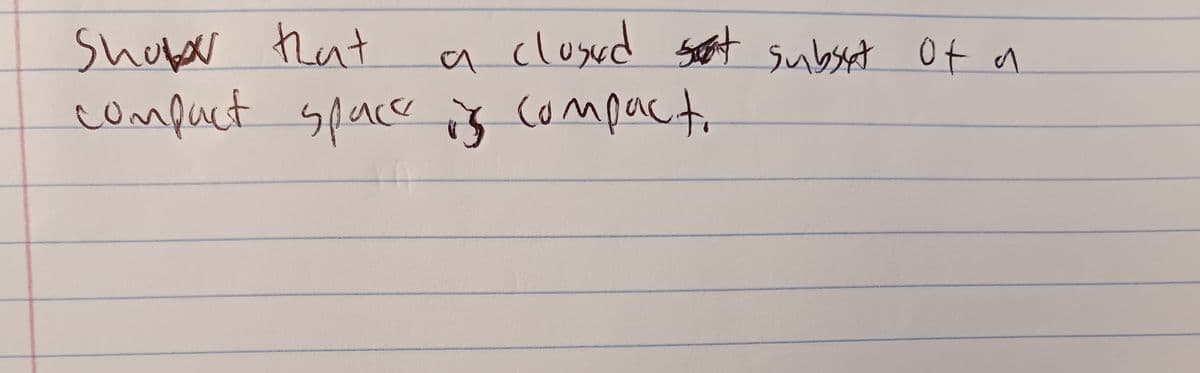 Show that a closed subset of a
compact space is compact.